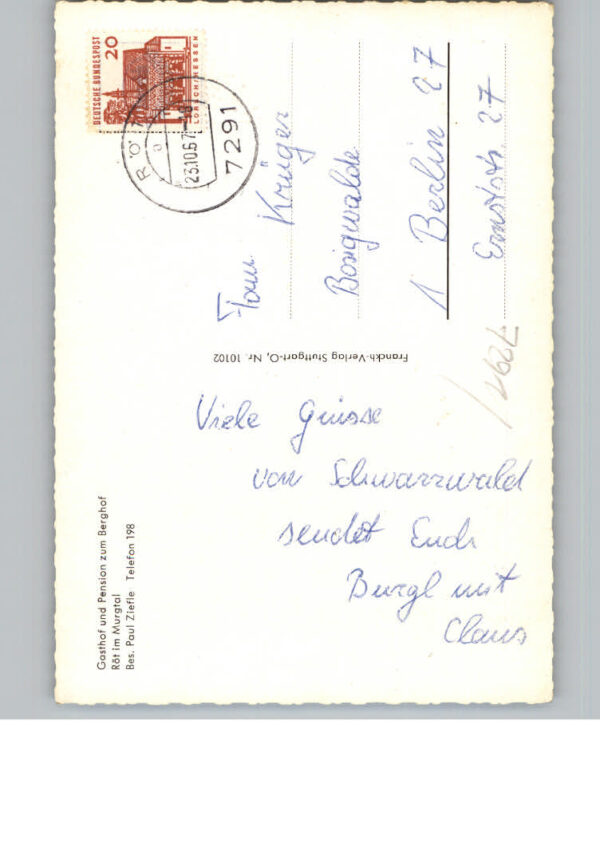 Gasthof und Pension zum Berghof
Röt im Murgtal
Bes. Paul Ziefle Telefon 198
Viele Grüsse
von Schwarzwald
sendet Euch
Burgl mit
Claus
Franckh-Verlag Stuttgart-O, Nr. 10102
DEUTSCHE BUNDESPOST
20
LORSCH/HESSEN
RÖT
a
23.10.67-18
7291
Fam Krüger
Borsigwalde
1 Berlin 27
Ernststr. 27